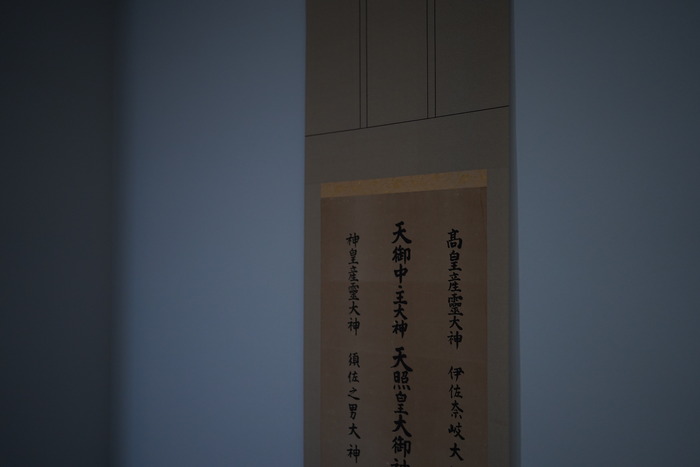 高皇産靈大神 伊佐奈岐大
天御中主大神 天照皇大御神
神皇産靈大神 須佐之男大神